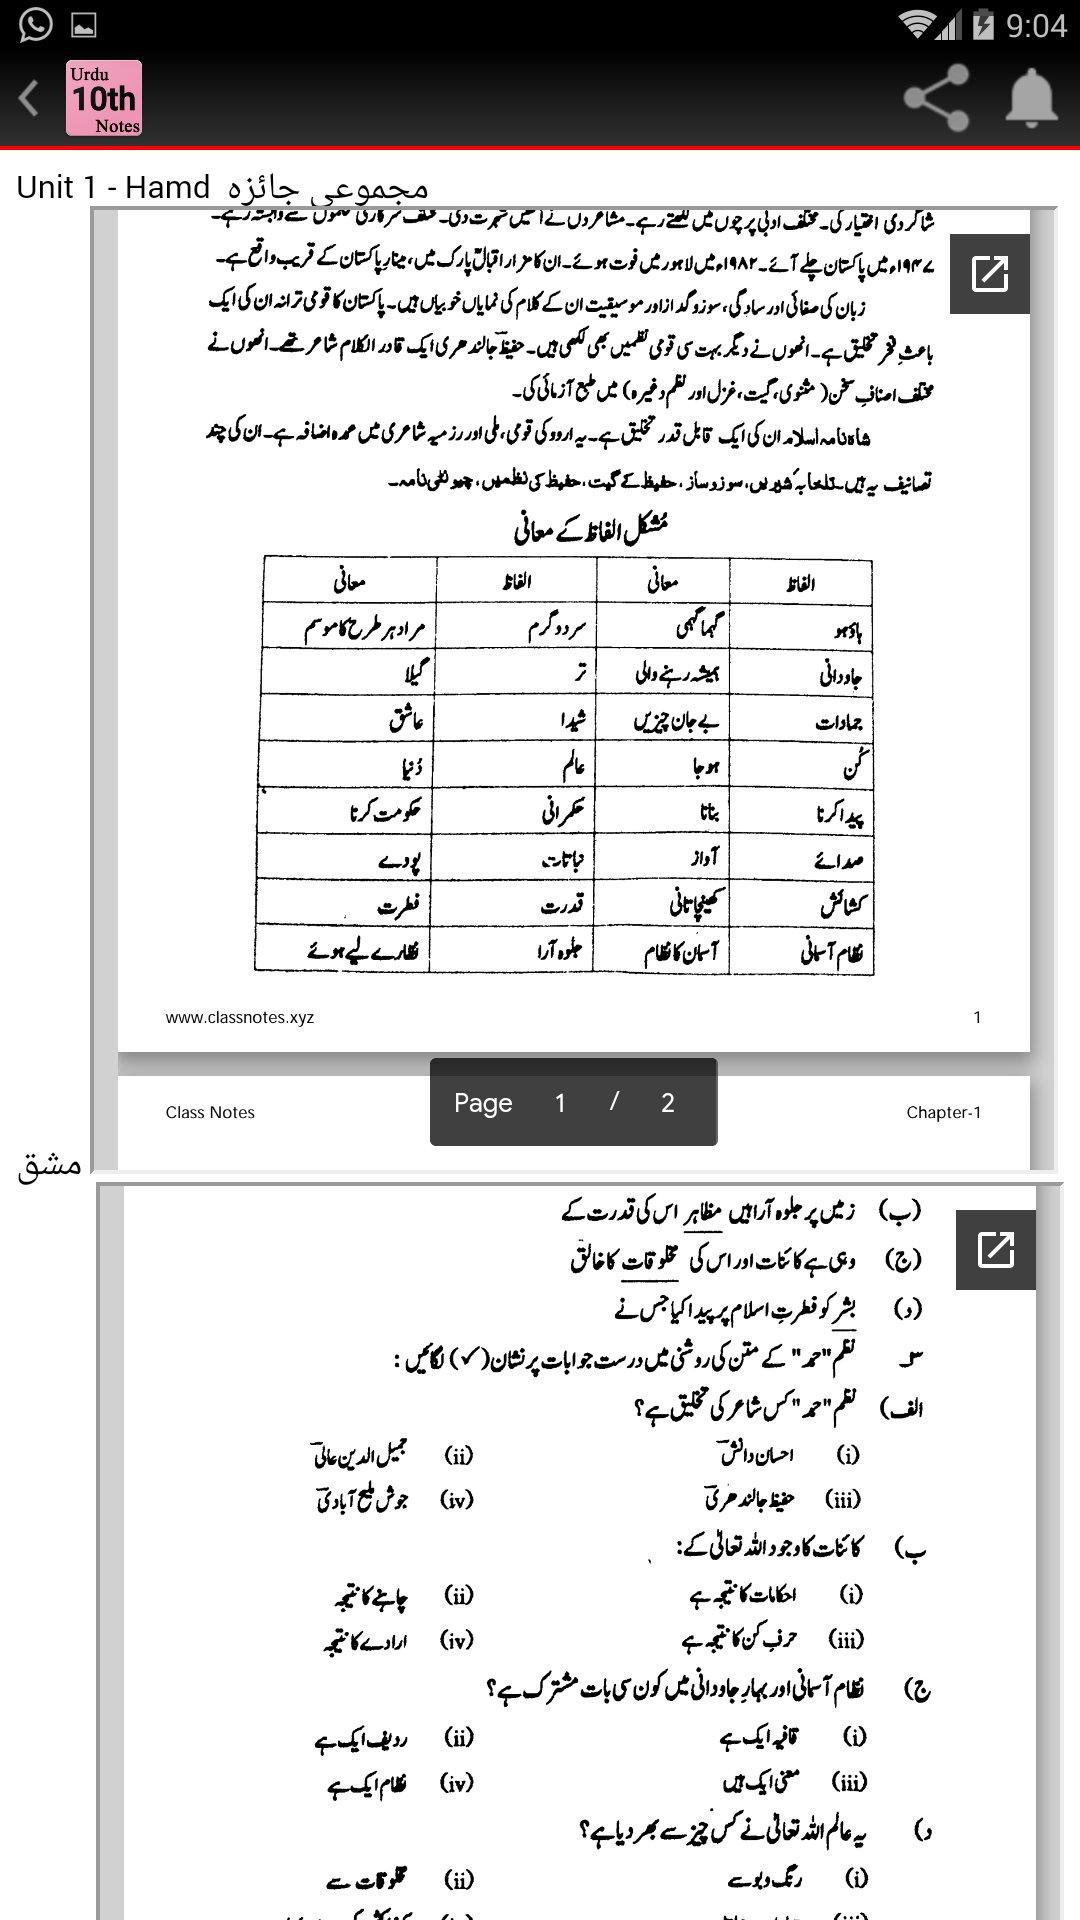 9:04
Urdu
10th
Notes
Unit 1 - Hamd مجموعی جائزہ
شاگردی اختیار کی۔ مختلف ادبی پرچوں میں لکھتے رہے۔ مشاعروں نے انھیں شہرت دی۔ مختلف سرکاری محکموں سے وابستہ رہے۔
۱۹۴۷ء میں پاکستان چلے آئے۔ ۱۹۸۲ء میں لاہور میں فوت ہوئے۔ ان کا مزار اقبال پارک میں، مینارِ پاکستان کے قریب واقع ہے۔
زبان کی صفائی اور سادگی، سوز و گداز اور موسیقیت ان کے کلام کی نمایاں خوبیاں ہیں۔ پاکستان کا قومی ترانہ ان کی ایک
باعثِ فخر تخلیق ہے۔ انھوں نے دیگر بہت سی قومی نظمیں بھی لکھی ہیں۔ حفیظؔ جالندھری ایک قادر الکلام شاعر تھے۔ انھوں نے
مختلف اصنافِ سخن (مثنوی، گیت، غزل اور نظم وغیرہ) میں طبع آزمائی کی۔
شاہ نامہ اسلام ان کی ایک قابلِ قدر تخلیق ہے۔ یہ اردو کی قومی، ملی اور رزمیہ شاعری میں عمدہ اضافہ ہے۔ ان کی چند
تصانیف یہ ہیں۔ تلخابۂ شیریں، سوز و ساز، حفیظ کے گیت، حفیظ کی نظمیں، چیونٹی نامہ۔
مُشکل الفاظ کے معانی
الفاظ معانی الفاظ معانی
ہاؤہو گہما گہمی سرد و گرم مراد ہر طرح کا موسم
جاودانی ہمیشہ رہنے والی تر گیلا
جمادات بے جان چیزیں شیدا عاشق
کُن ہو جا عالم دُنیا
پیدا کرنا بنانا حکمرانی حکومت کرنا
صدائے آواز نباتات پودے
کشائش کھینچا تانی قدرت فطرت
نظام آسمانی آسمان کا نظام جلوہ آرا نظارے لیے ہوئے
www.classnotes.xyz 1
Page 1 / 2
Class Notes Chapter-1
مشق
(ب) زمیں پر جلوہ آرا ہیں مظاہر اس کی قدرت کے
(ج) وہی ہے کائنات اور اس کی مخلوقات کا خالق
(د) بشر کو فطرتِ اسلام پر پیدا کیا جس نے
۳۔ نظم "حمد" کے متن کی روشنی میں درست جوابات پر نشان (✓) لگائیں:
الف) نظم "حمد" کس شاعر کی تخلیق ہے؟
(i) احسان دانشؔ (ii) جمیل الدین عالیؔ
(iii) حفیظ جالندھریؔ (iv) جوش ملیح آبادیؔ
ب) کائنات کا وجود اللہ تعالیٰ کے:
(i) احکامات کا نتیجہ ہے (ii) چاہنے کا نتیجہ
(iii) حرفِ کن کا نتیجہ ہے (iv) ارادے کا نتیجہ
ج) نظام آسمانی اور بہارِ جاودانی میں کون سی بات مشترک ہے؟
(i) قافیہ ایک ہے (ii) ردیف ایک ہے
(iii) معنی ایک ہیں (iv) نظام ایک ہے
د) یہ عالم اللہ تعالیٰ نے کس چیز سے بھر دیا ہے؟
(i) رنگ و بو سے (ii) مخلوقات سے